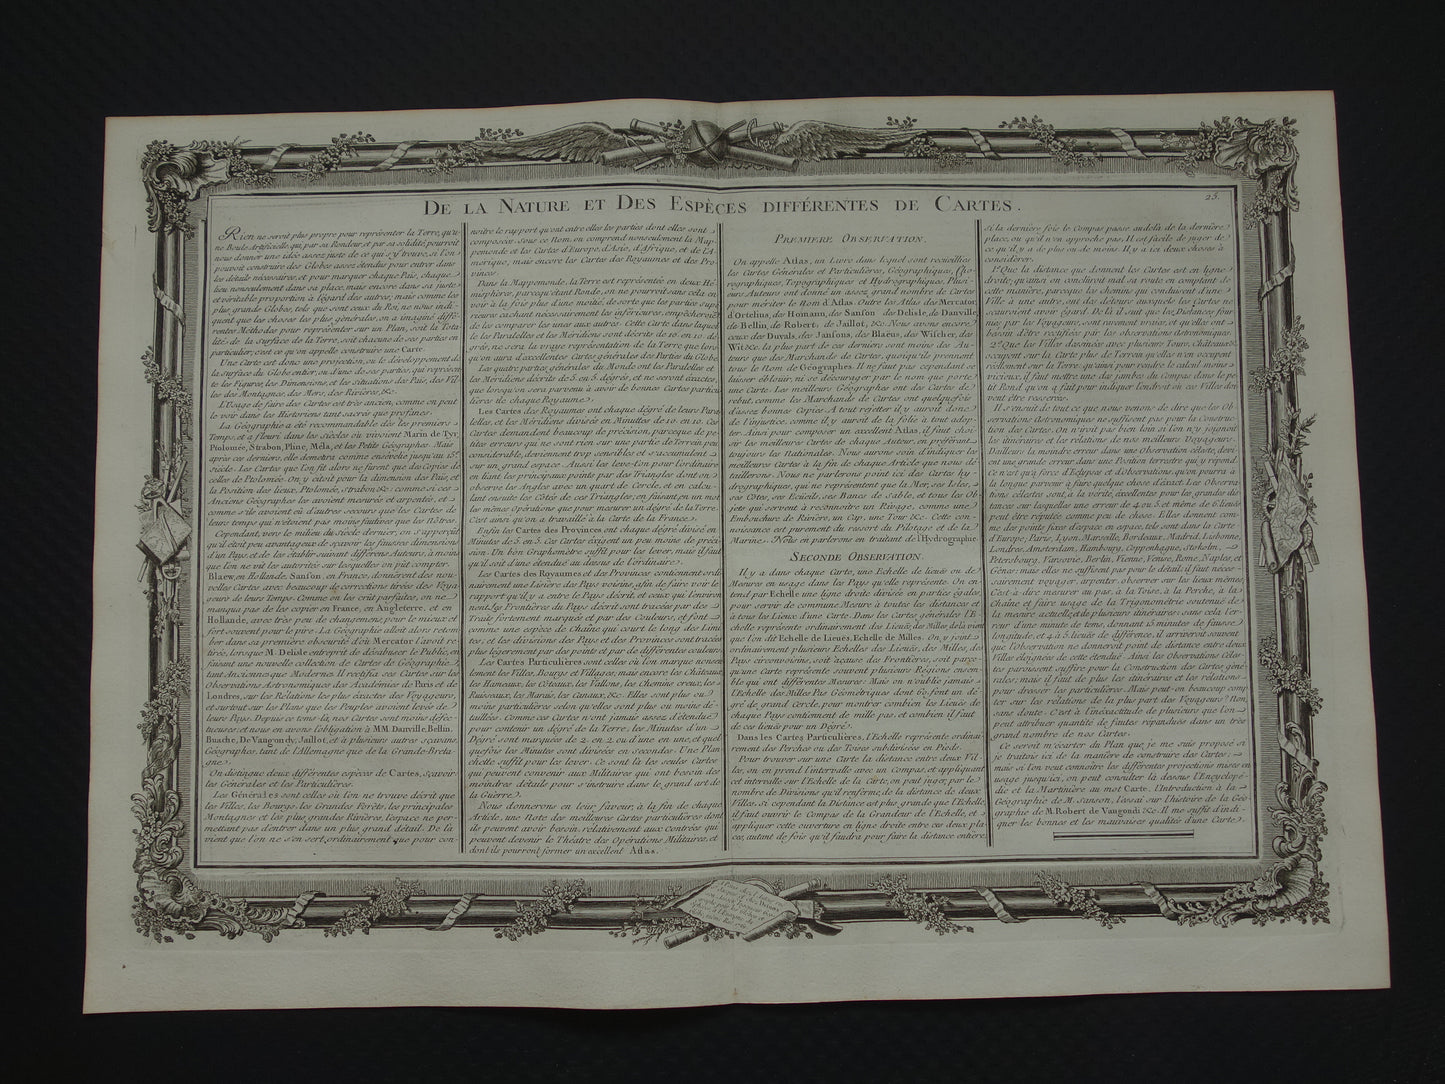 DE LA NATURE ET DES ESPÈCES DIFFÉRENTES DE CARTES.
25.
Rien ne seroit plus propre pour représenter la Terre, qu'u-
ne Boule Artificielle, qui, par sa Rondeur, et par sa solidité, pourroit
nous donner une idée assez juste de ce qui s'y trouve, si l'on
pouvoit construire des Globes assez étendus pour entrer dans
les détails nécessaires, et pour marquer chaque Païs, chaque
lieu nonseulement dans sa place, mais encore dans sa juste
et véritable proportion à l'égard des autres; mais comme les
plus grands Globes, tels que sont ceux du Roi, ne nous indi-
quent que les choses les plus générales, on a imaginé diffé-
rentes Méthodes pour représenter sur un Plan, soit la Tota-
lité de la surface de la Terre, soit chacune de ses parties en
particulier; c'est ce qu'on appelle construire une Carte.
Une Carte est donc une projection, ou le développement de
la surface du Globe entier, ou d'une de ses parties, qui représen-
te les Figures, les Dimensions, et les situations des Païs, des Vil-
les, des Montagnes, des Mers, des Rivières, &c.
L'Usage de faire des Cartes est très ancien, comme on peut
le voir dans les Historiens tant sacrés que profanes.
La Géographie a été recommandable dès les premiers
Temps, et a fleuri dans les Siècles où vivoient Marin de Tyr,
Ptolomée, Strabon, Pline, Méla, et les Petits Géographes. Mais
après ces derniers, elle demeura comme ensévelie jusqu'au 15e.
siécle. Les Cartes que l'on fit alors ne furent que des Copies de
celles de Ptolomée. On y citoit pour la dimension des Païs, et
la Position des lieux, Ptolomée, Strabon &c. comme si ces
Anciens Géographes les avoient mesurés et arpentés, et
comme s'ils avoient eu d'autres secours que les Cartes de
leurs temps qui n'étoient pas moins fautives que les Nôtres.
Cependant, vers le milieu du Siècle dernier, on s'apperçut
qu'il étoit peu avantageux de sçavoir les fausses dimensions
d'un Païs, et de les établir suivant différens Auteurs, à moins
que l'on ne vit les autorités sur lesquelles on put compter.
Blaew, en Hollande, Sanson, en France, donnèrent des nou-
velles Cartes avec beaucoup de corrections tirées des Voya-
geurs de leurs Temps. Comme on les crût parfaites, on ne
manqua pas de les copier en France, en Angleterre, et en
Hollande, avec très peu de changemens, pour le mieux et
fort souvent pour le pire. La Géographie alloit alors retom-
ber dans sa premiere obscurité d'où Mercator l'avoit re-
tirée, lorsque M. Delisle entreprit de désabuser le Public, en
faisant une nouvelle collection de Cartes de Géographie,
tant Ancienne que Moderne. Il rectifia ses Cartes sur les
Observations Astronomiques des Académies de Paris et de
Londres, sur les Relations les plus exactes des Voyageurs,
et surtout sur les Plans que les Peuples avoient levés de
leurs Pays. Depuis ce tems là, nos Cartes sont moins défec-
tueuses; et nous en avons l'obligation à MM. Danville, Bellin,
Buache, De Vaugondy, Jaillot, et à plusieurs autres sçavans
Géographes, tant de l'Allemagne que de la Grande-Breta-
gne.
On distingue deux différentes espèces de Cartes, sçavoir
les Générales et les Particulières.
Les Générales sont celles où l'on ne trouve décrit que
les Villes, les Bourgs, les Grandes Forêts, les principales
Montagnes et les plus grandes Rivières, l'espace ne per-
mettant pas d'entrer dans un plus grand détail. De là
vient que l'on ne s'en sert ordinairement que pour con-
noître le rapport qu'ont entre elles les parties dont elles sont
composées. Sous ce Nom, on comprend nonseulement la Map-
pemonde et les Cartes d'Europe, d'Asie, d'Afrique, et de l'A-
mérique, mais encore les Cartes des Royaumes et des Pro-
vinces.
Dans la Mappemonde, la Terre est représentée en deux Hé-
misphères, parcequ'étant Ronde, on ne pourroit sans cela en
voir à la fois plus d'une moitié, de sorte que les parties supé-
rieures cachant nécessairement les inférieures, empêcheroient
de les comparer les unes aux autres. Cette Carte dans laquel-
le les Paralleles et les Méridiens sont décrits de 10 en 10 dé-
grés, ne sera la vraye représentation de la Terre que lors-
qu'on aura d'excellentes Cartes générales des Parties du Globe.
Les quatre parties générales du Monde ont les Paralleles et
les Méridiens décrits de 5 en 5 dégrés, et ne seront exactes,
que lorsqu'on sera parvenu à avoir de bonnes Cartes particu-
lières de chaque Royaume.
Les Cartes des Royaumes ont chaque dégré de leurs Para-
lelles, et les Méridiens divisés en Minutes de 10 en 10. Ces
Cartes demandent beaucoup de précision, parceque de pe-
tites erreurs qui ne sont rien sur une partie de Terrein peu
considérable, deviennent trop sensibles et s'accumulent
sur un grand espace. Aussi les leve-t'on pour l'ordinaire
en liant les principaux points par des Triangles dont on
observe les Angles avec un quart de Cercle, et en calcu-
lant ensuite les Côtés de ces Triangles; en faisant, en un mot
les mêmes opérations que pour mesurer un dégré de la Terre.
C'est ainsi qu'on a travaillé à la Carte de la France.
Enfin les Cartes des Provinces ont chaque dégré divisé en
Minutes de 5 en 5. Ces Cartes exigent un peu moins de préci-
sion. Un bon Graphomètre suffit pour les lever, mais il faut
qu'il soit d'une étendue au dessus de l'ordinaire.
Les Cartes des Royaumes et des Provinces contiennent ordi-
nairement une lisière des Pays voisins, afin de faire voir le
rapport qu'il y a entre le Pays décrit, et ceux qui l'environ-
nent. Les Frontières du Pays décrit sont tracées par des
Traits fortement marqués et par des Couleurs, et font
comme une espèce de Chaîne qui court le long des Limi-
tes, et les divisions des Pays et des Provinces sont tracées
plus légerement par des points et par de différentes couleurs.
Les Cartes Particulières sont celles où l'on marque nonseu-
lement les Villes, Bourgs et Villages; mais encore les Châteaux,
les Hameaux, les Côteaux, les Vallons, les Chemins creux, les
Ruisseaux, les Marais, les Canaux, &c. Elles sont plus ou
moins particulières selon qu'elles sont plus ou moins dé-
taillées. Comme ces Cartes n'ont jamais assez d'étendue
pour contenir un dégré de la Terre, les Minutes d'un
Dégré sont marquées de 2 en 2, ou d'une en une, et quel-
quefois les Minutes sont divisées en secondes. Une Plan-
chette suffit pour les lever. Ce sont là les seules Cartes
qui peuvent convenir aux Militaires qui ont besoin des
moindres détails pour s'instruire dans le grand art de
la Guerre.
Nous donnerons en leur faveur, à la fin de chaque
Article, une Note des meilleures Cartes particulières dont
ils peuvent avoir besoin, relativement aux Contrées qui
peuvent devenir le Théatre des Opérations Militaires, et
dont ils pourront former un excellent Atlas.
PREMIERE OBSERVATION.
On appelle Atlas, un Livre dans lequel sont recueillies
les Cartes Générales et Particulières, Géographiques, Cho-
rographiques, Topographiques et Hydrographiques. Plusi-
eurs Auteurs ont donné un assez grand nombre de Cartes
pour mériter le Nom d'Atlas. Outre les Atlas des Mercator,
d'Ortelius, des Homann, des Sanson, des Delisle, de Danville,
de Bellin, de Robert, de Jaillot, &c. Nous avons encore
ceux des Duvals, des Jansons, des Blaëus, des Wischer, des
Wit &c. la plus part de ces derniers sont moins des Au-
teurs que des Marchands de Cartes, quoiqu'ils prennent
tous le Nom de Géographes. Il ne faut pas cependant se
laisser éblouir, ni se décourager par le nom que porte
une Carte. Les meilleurs Géographes ont des Cartes de
rebut, comme les Marchands de Cartes ont quelquefois
d'assez bonnes Copies. A tout rejetter il y auroit donc
de l'injustice, comme il y auroit de la folie à tout adop-
ter. Ainsi pour composer un excellent Atlas, il faut choi-
sir les meilleures Cartes de chaque Auteur, en préférant
toujours les Nationales. Nous aurons soin d'indiquer les
meilleures Cartes à la fin de chaque Article que nous dé-
taillerons. Nous ne parlerons point ici des Cartes hy-
drographiques, qui ne représentent que la Mer, ses Isles,
ses Côtes, ses Ecüeils, ses Bancs de Sable, et tous les Ob-
jets qui servent à reconnoître un Rivage, comme une
Embouchure de Rivière, un Cap, une Tour &c. Cette con-
noissance est purement du ressort du Pilotage et de la
Marine. Nous en parlerons en traitant de l'Hydrographie.
SECONDE OBSERVATION.
Il y a dans chaque Carte, une Echelle de lieuës ou de
Mesures en usage dans les Pays qu'elle représente. On en-
tend par Echelle une ligne droite divisée en parties égales,
pour servir de commune Mesure à toutes les distances et
à tous les Lieux d'une Carte. Dans les Cartes générales l'E-
chelle représente ordinairement des Lieuës, des Milles, delà vient
que l'on dit Echelle de Lieuës, Echelle de Milles. On y joint
ordinairement plusieurs Echelles des Lieuës, des Milles, des
Pays circonvoisins, soit à cause des Frontières, soit parce-
qu'une Carte représente souvent plusieurs Régions ensem-
ble qui ont différentes Mesures. Mais on n'oublie jamais
l'Echelle des Milles Pas Géométriques dont 60 font un dé-
gré de grand Cercle, pour montrer combien les Lieuës de
chaque Pays contiennent de mille pas, et combien il faut
de ces lieuës pour un Dégré.
Dans les Cartes Particulières, l'Echelle représente ordinai-
rement des Perches ou des Toises subdivisées en Pieds.
Pour trouver sur une Carte la distance entre deux Vil-
les, on en prend l'intervalle avec un Compas, et appliquant
cet intervalle sur l'Echelle de la Carte, on peut juger, par le
nombre de Divisions qu'il renferme, de la distance de deux
Villes. Si cependant la Distance est plus grande que l'Echelle,
il faut ouvrir le Compas de la Grandeur de l'Echelle, et
appliquer cette ouverture en ligne droite entre ces deux pla-
ces, autant de fois qu'il faudra pour faire la distance entière.
si la dernière fois le Compas passe audelà de la dernière
place, ou qu'il n'en approche pas. Il est facile de juger de
ce qu'il y a de plus ou de moins. Il y a ici deux choses à
considérer.
1°. Que la distance que donnent les Cartes est en ligne
droite; qu'ainsi on conclüroit mal sa route en comptant de
cette manière, parceque les chemins qui conduisent d'une
Ville à une autre, ont des détours auxquels les Cartes ne
sçauroient avoir égard. De là il suit que les Distances four-
nies par les Voyageurs, sont rarement vraies, et qu'elles ont
besoin d'être rectifiées par les observations Astronomiques.
2°. Que les Villes dessinées avec plusieurs Tours, Châteaux &c.
occupent sur la Carte plus de Terrein qu'elles n'en occupent
réellement sur la Terre; qu'ainsi pour rendre le calcul moins
vicieux, il faut mettre une des jambes du Compas dans le pe-
tit Rond qu'on y fait pour indiquer l'endroit où ces Villes doi-
vent être resserrées.
Il s'ensuit de tout ce que nous venons de dire que les Ob-
servations Astronomiques ne suffisent pas pour la Construc-
tion des Cartes. On n'iroit pas bien loin si l'on n'y joignoit
les itinéraires et les relations de nos meilleurs Voyageurs.
D'ailleurs la moindre erreur dans une Observation céleste, devi-
ent une grande erreur dans une Position terrestre qui y répond.
Ce n'est qu'à force d'Eclipses et d'Observations, qu'on pourra à
la longue parvenir à faire quelque chose d'éxact. Les Observa-
tions célestes sont, à la vérité, éxcellentes pour les grandes dis-
tances sur lesquelles une erreur de 4 ou 5 et même de 6 lieuës
peut être réputée comme peu de chose. Elles donnent com-
me des points fixes d'espace en espace, tels sont dans la Carte
d'Europe, Paris, Lyon, Marseille, Bordeaux, Madrid, Lisbonne,
Londres, Amsterdam, Hambourg, Coppenhague, Stokolm,
Petersbourg, Varsovie, Berlin, Vienne, Venise, Rome, Naples et
Gênes: mais elles ne suffisent pas pour le détail; il faut néces-
sairement voyager, arpenter, observer sur les lieux mêmes,
C'est à dire mesurer au pas, à la Toise, à la Perche, à la
Chaîne et faire usage de la Trigonométrie soutenuë de
la mesure actuelle, et de plusieurs itinéraires: sans cela l'er-
reur d'une minute de tems, donnant 15 minutes de fausse
longitude, et 4 à 5 lieuës de différence, il arriveroit souvent
que l'Observation ne donneroit point de distance entre deux
Villes éloignées de cette étendue. Ainsi les Observations Céle-
stes paroissent suffire pour la Construction des Cartes géné-
rales; mais il faut de plus les itinéraires et les relations
pour dresser les particulières. Mais peut-on beaucoup comp-
ter sur les relations de la plus part des Voyageurs? Non
sans doute. C'est à l'inéxactitude de plusieurs que l'on
peut attribuer quantité de fautes répandues dans un très
grand nombre de nos Cartes.
Ce seroit m'écarter du Plan que je me suis proposé si
je traitois ici de la manière de construire des Cartes;
mais si l'on veut connoître les différentes projections mises en
usage jusqu'ici, on peut consulter là dessus l'Encyclopé-
die et la Martinière au mot Carte, l'Introduction à la
Géographie de M. Sanson, l'essai sur l'histoire de la Géo-
graphie de M. Robert de Vaugondi &c. Il me suffit d'indi-
quer les bonnes et les mauvaises qualités d'une Carte.